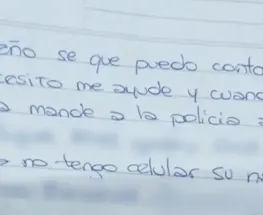 eño se que puedo conta
cesito me ayude y cuand
mande a la policia a
no tengo celular su n